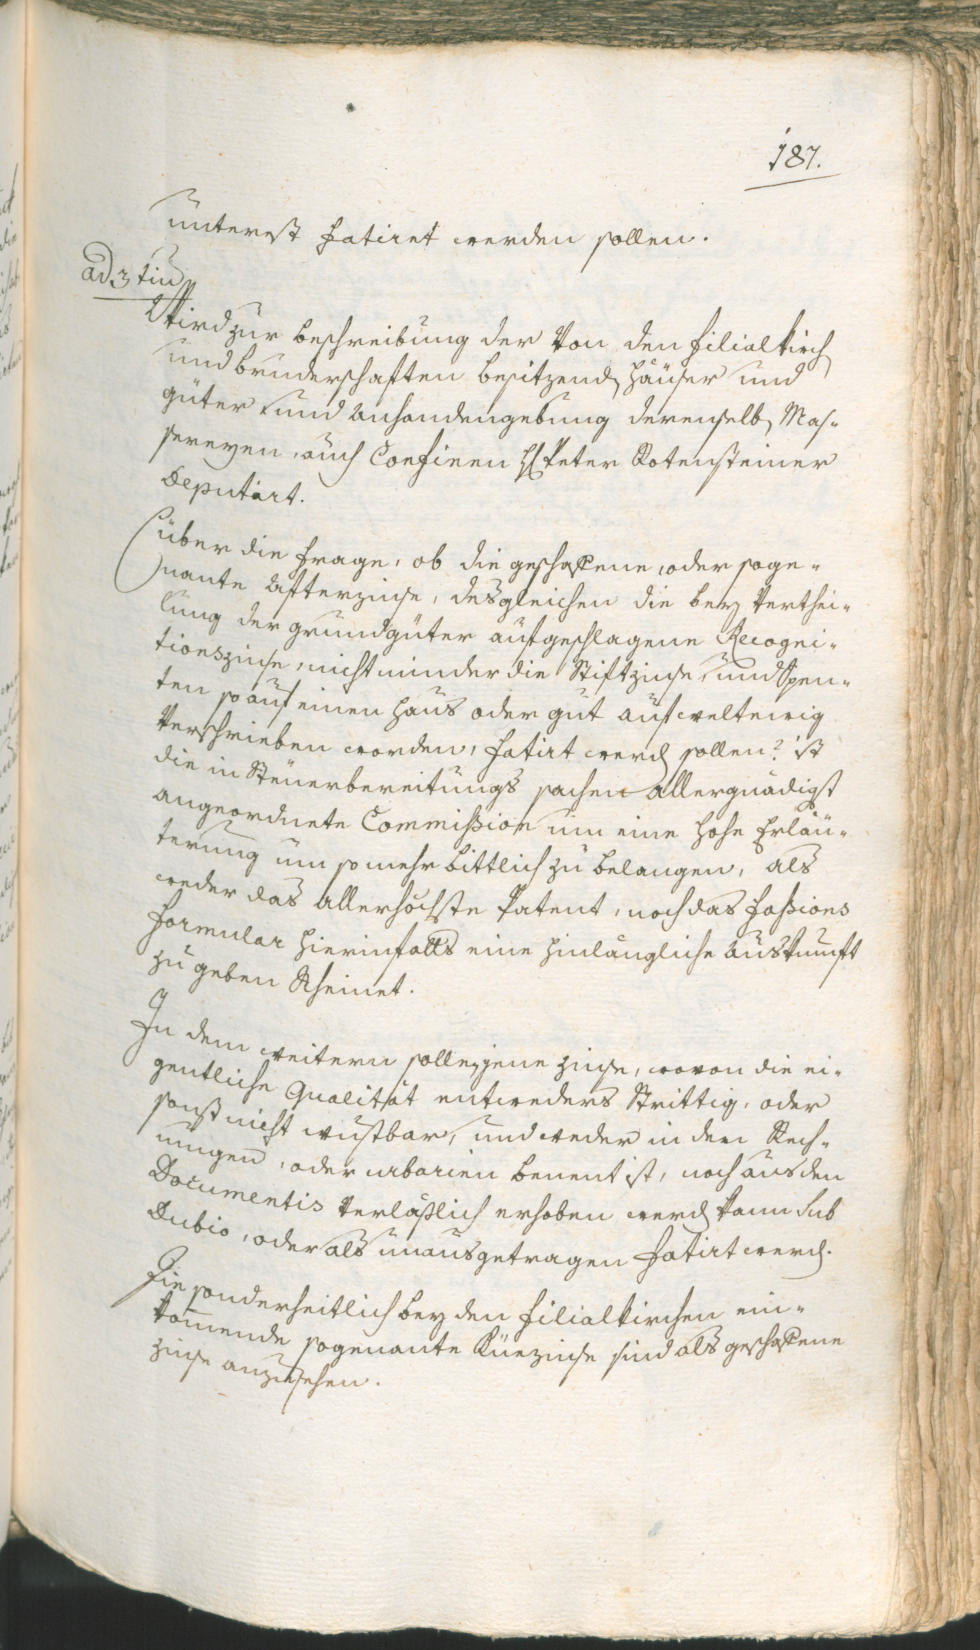 187.
unterst fatiret werden sollen.
ad 3tiu
Wird zur beschreibung der Von den filialkirch
und bruderschaften besitzend häuser und
güter und anhandengebung derenselb Mas¬
sereyen, auch Confinen H Peter Rotensteiner
Deputirt.
über die frage, ob die geschaffene, oder soge¬
nante Afterzinse, desgleichen die bey Verthei¬
lung der grundgüter aufgeschlagene Recogni¬
tionszinse, nicht minder die Stiftzinse, und Spen¬
ten so auf einen haus oder gut auf weltewig
Verschrieben worden, fatirt werd sollen? ist
die in Steuerbereitungs sachen allergnädigst
angeordnete Commission um eine hohe Erläu¬
terung um so mehr bittlich zu belangen, als
weder das Allerhöchste Patent, noch das fassions
formular hierinfalls eine hinlängliche auskunft
zu geben scheinet.
In dem weitern sollen jene zinse, wovon die ei¬
gentliche Qualität entweders strittig, oder
sonst nicht wustbar, und weder in den Rech¬
nungen, oder urbarien benent ist, noch aus den
Documentis Verläßlich erhoben werd kann sub
Dubio, oder als unausgetragen fatirt werd.
Die sonderheitlich bey den filialkirchen ein¬
kommende sogenante Küezinse sind als geschaffene
zinse anzusehen.